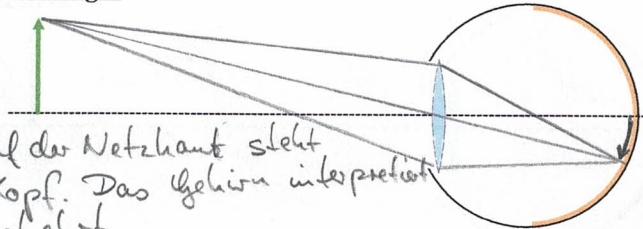 der Netzhaut steht
Kopf. Das Gehirn interpretiert